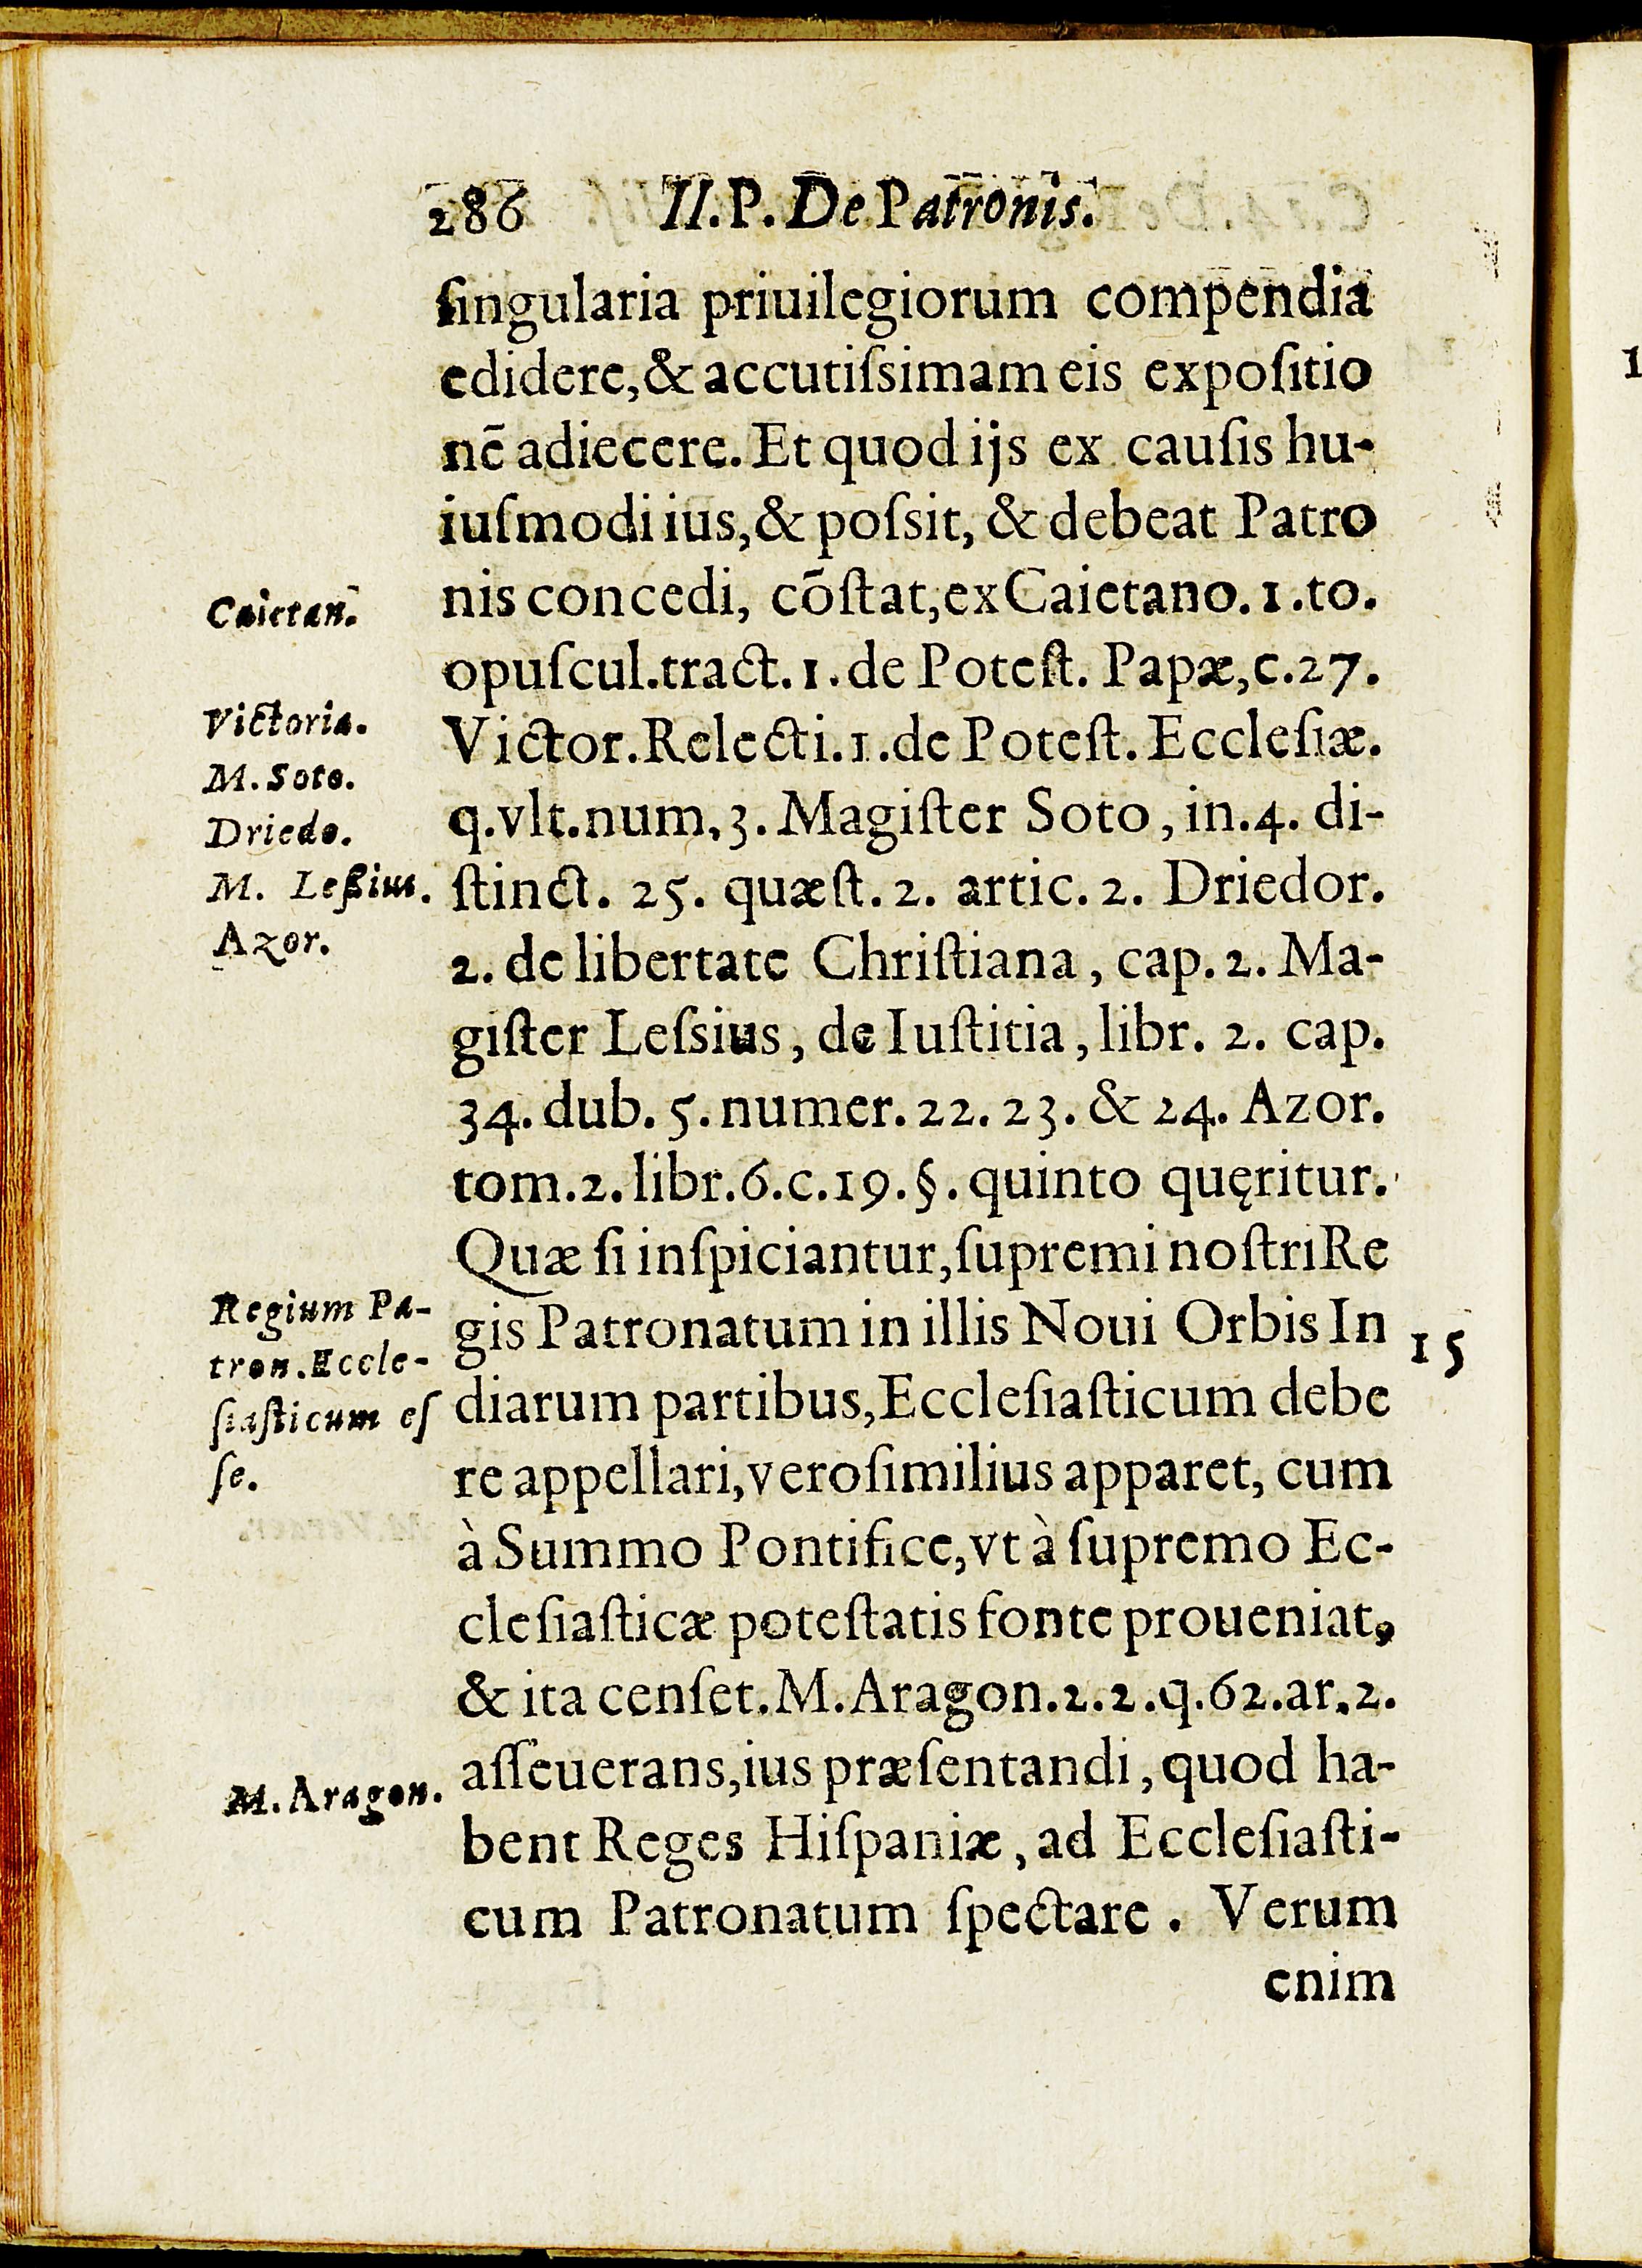 286 II.P. De Patronis.
ſingularia priuilegiorum compendia
edidere,& accutiſsimam eis expoſitio
nē adiecere. Et quod ijs ex cauſis hu-
iuſmodi ius,& poſsit, & debeat Patro
nis concedi, cōſtat,ex Caietano. 1.to.
opuſcul.tract.1.de Poteſt. Papæ,c.27.
Victor.Relecti.1.de Poteſt. Eccleſiæ.
q.vlt.num.3. Magiſter Soto, in.4. di-
ſtinct. 25. quæſt. 2. artic. 2. Driedor.
2. de libertate Chriſtiana, cap. 2. Ma-
giſter Leſsius, de Iuſtitia, libr. 2. cap.
34. dub. 5. numer. 22. 23. & 24. Azor.
tom.2. libr.6.c.19.§. quinto quęritur.
Quæ ſi inſpiciantur,ſupremi noſtri Re
gis Patronatum in illis Noui Orbis In
diarum partibus,Eccleſiaſticum debe
re appellari,veroſimilius apparet, cum
à Summo Pontifice,vt à ſupremo Ec-
cleſiaſticæ poteſtatis fonte proueniat,
& ita cenſet.M.Aragon.2.2.q.62.ar.2.
aſſeuerans,ius præſentandi, quod ha-
bent Reges Hiſpaniæ, ad Eccleſiaſti-
cum Patronatum ſpectare. Verum
enim
Caietan.
Victoria.
M. Soto.
Driedo.
M. Leßius.
Azor.
Regium Pa-
tron.Eccle-
ſiaſticum eſ
ſe.
M. Aragon.
15